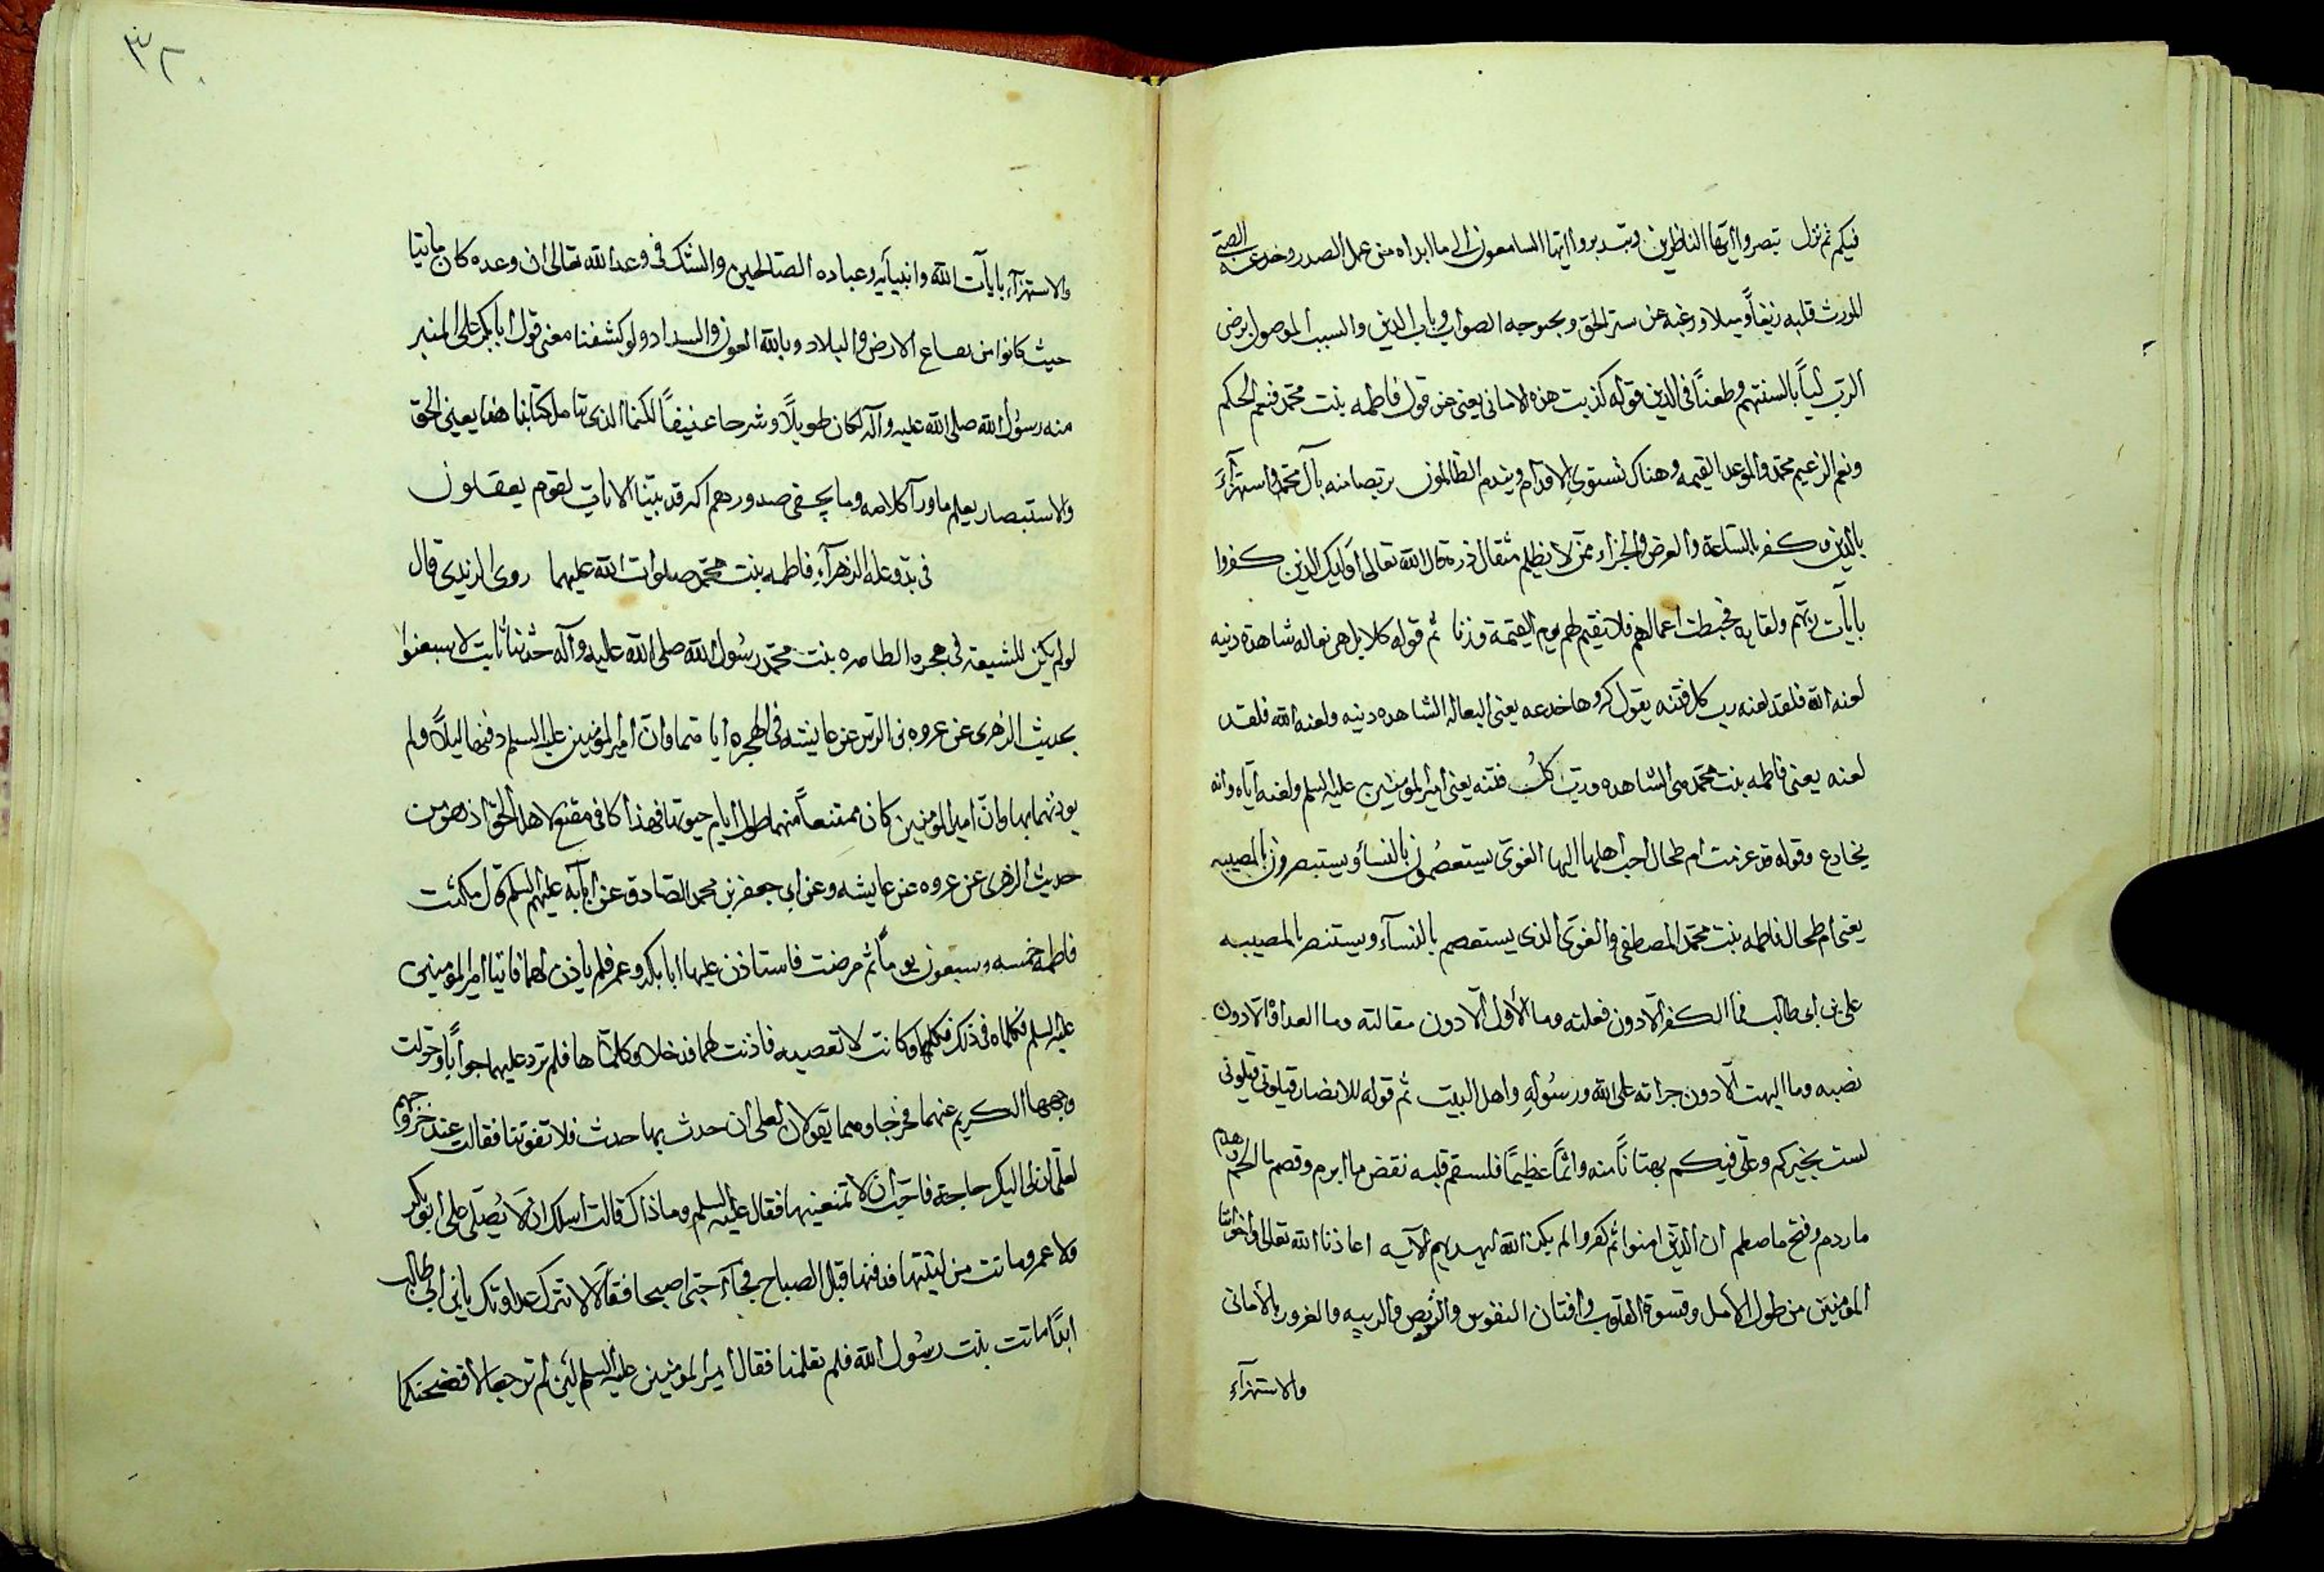 فيكم ثم نزل تبصروا ايها الناظرين وتدبروا ايها السامعون الى ما ابداه من عمل الصدر وخدعه
المورث قلبه زيغاً وميلا ورغبه عن ستر الحق وبحبوحه الصواب وباب الدين والسبب الموصول برضى
الرب لياً بالسنتهم وطعناً في الدين قوله كذبت هذه الاماني يعنى عن قول فاطمه بنت محمد فنعم الحكم
ونعم الزعيم محمد والموعد القيمه وهناك تستوى الاقدام ويندم الظالمون بربصا منه بآل محمد واستهزآءً
بالدين وكفر بالساعة والعرض والجزاء ممن لا يظلم مثقال ذرة قال الله تعالى اوليك الذين كفروا
بايآت ربهم ولقايه فحبطت اعمالهم فلا نقيم لهم يوم القيمة وزنا ثم قوله كلا بل هى ثعاله شاهده ذنبه
لعنه الله فلقد لعنه رب كل فتنه يقول كروها خدعه يعنى الثعاله الشاهده ذنبه ولعنه الله فلقد
لعنه يعنى فاطمه بنت محمد هى الشاهده ورب كل فتنه يعنى امير المومنين عليه السلم ولعنه اياه وانه
يخادع وقوله قد عزمت ام طحال احب اهلها اليها الغوى يستعصمون بالنسآ ويستبصرون بالمصيبه
يعنى ام طحال فاطمه بنت محمد المصطفى والغوى الذى يستعصم بالنسآء ويستنصر بالمصيبه
على بن ابى طالب فما الكفر الا دون فعلته وما الأول الا دون مقالته وما العداوة الا دون
نصبه وما البهت الا دون جراته على الله ورسُولهِ واهل البيت ثم قوله للانصار قيلونى قيلونى
لست بخيركم وعلى فيكم بهتاناً منه واثماً عظيماً فلسقم قلبه نقض ما ابرم وقصم ما لحم وهدم
ما ردم وفتح ما صلم ان الذين امنوا ثم كفروا لم يكن الله ليهديهم الآيه اعاذنا الله تعالى واخواننا
المومنين من طول الأمل وقسوة القلوب وافتتان النفوس والتربص والريبه والغرور بالأمانى
والاستهزآءِ
٣٢٠
والاستهزآءِ بايآت الله وانبيآيه وعباده الصالحين والشك فى وعد الله تعالى ان وعده كان ماتيا
حيث كانوا من بقاع الارض والبلاد وبالله العون والسداد ولو كشفنا معنى قول ابا بكر على المنبر
منه رسُول الله صلى الله عليه وآله لكان طويلاً وشرحا عنيفاً لكنما الذى تامل كتابنا هذا يعنى الحق
والاستبصار يعلم ما ورآ كلامه وما يخفى صدورهم اكبر قد بينا الايات لقوم يعقلون
فى بدو علة الزهرآءِ فاطمه بنت محمّد صلوات الله عليهما روى الزيدى قال
لو لم يكن للشيعة فى هجره الطاهره بنت محمّد رسُول الله صلى الله عليه وآله حدثنا ثابت
بحديث الزهرى عن عروه بن الزبير عن عايشه فى الهجره اياهما وان امير المومنين عليه السلم دفنها ليلاً ولم
يوذنهما بها وانّ امير المومنين كان ممتنعاً منهما طول ايام حيوتها فهذا كافى مقنع لاهل الحق اذ هو من
حديث الزهرى عن عروه عن عايشه وعن ابى جعفر بن محمد الصادق عن ابآيه عليهم السلم قال مكثت
فاطمه خمسه وسبعون يوماً ثم مرضت فاستاذن عليها ابا بكر وعمر فلم ياذن لهما فاتيا امير المومنين
عليه السلم فكلماه فى ذلك فكلمها وكانت لا تعصيه فاذنت لهما فدخلا وكلماها فلم ترد عليهما جواباً وحولت
وجهها الكريم عنهما فخرجا وهما يقولان لعلى ان حدث بها حدث فلا تفوتنا فقالت عند خروجهم
لعلى ان لى اليك حاجة فاحب ان لا تمنعنيها فقال عليه السلم وما ذاك قالت اسلك ان لا يُصلى على ابو بكر
ولا عمر وماتت من ليلتها فدفنها قبل الصباح فجآء حتى اصبحا فقالا لا تترك عداوتك يا بن ابى طالب
ابداً ماتت بنت رسُول الله فلم تعلمنا فقال امير المومنين عليه السلم لئن لم ترجعا لافضحنكما